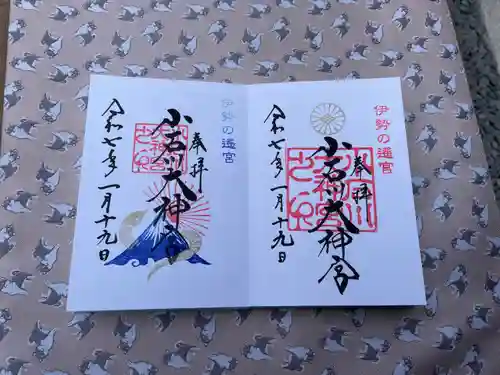 伊勢の遥宮
奉拝
小石川大神宮
令和七年一月十九日
伊勢の遥宮
奉拝
小石川大神宮
令和七年一月十九日